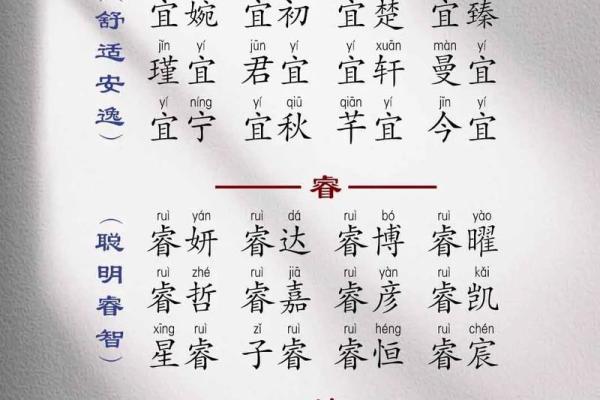 舒适安逸）
宜婉 宜初 宜楚 宜臻
jǐn yí jūn yí yí xuān màn yí
瑾宜 君宜 宜轩 曼宜
yí níng yí qiū qiān yí jīn yí
宜宁 宜秋 芊宜 今宜
睿
（聪明睿智）
ruì yán ruì dá ruì bó ruì yào
睿妍 睿达 睿博 睿曜
ruì zhé ruì jiā ruì yàn ruì kǎi
睿哲 睿嘉 睿彦 睿凯
xīng ruì zǐ ruì ruì héng ruì chén
星睿 子睿 睿恒 睿宸